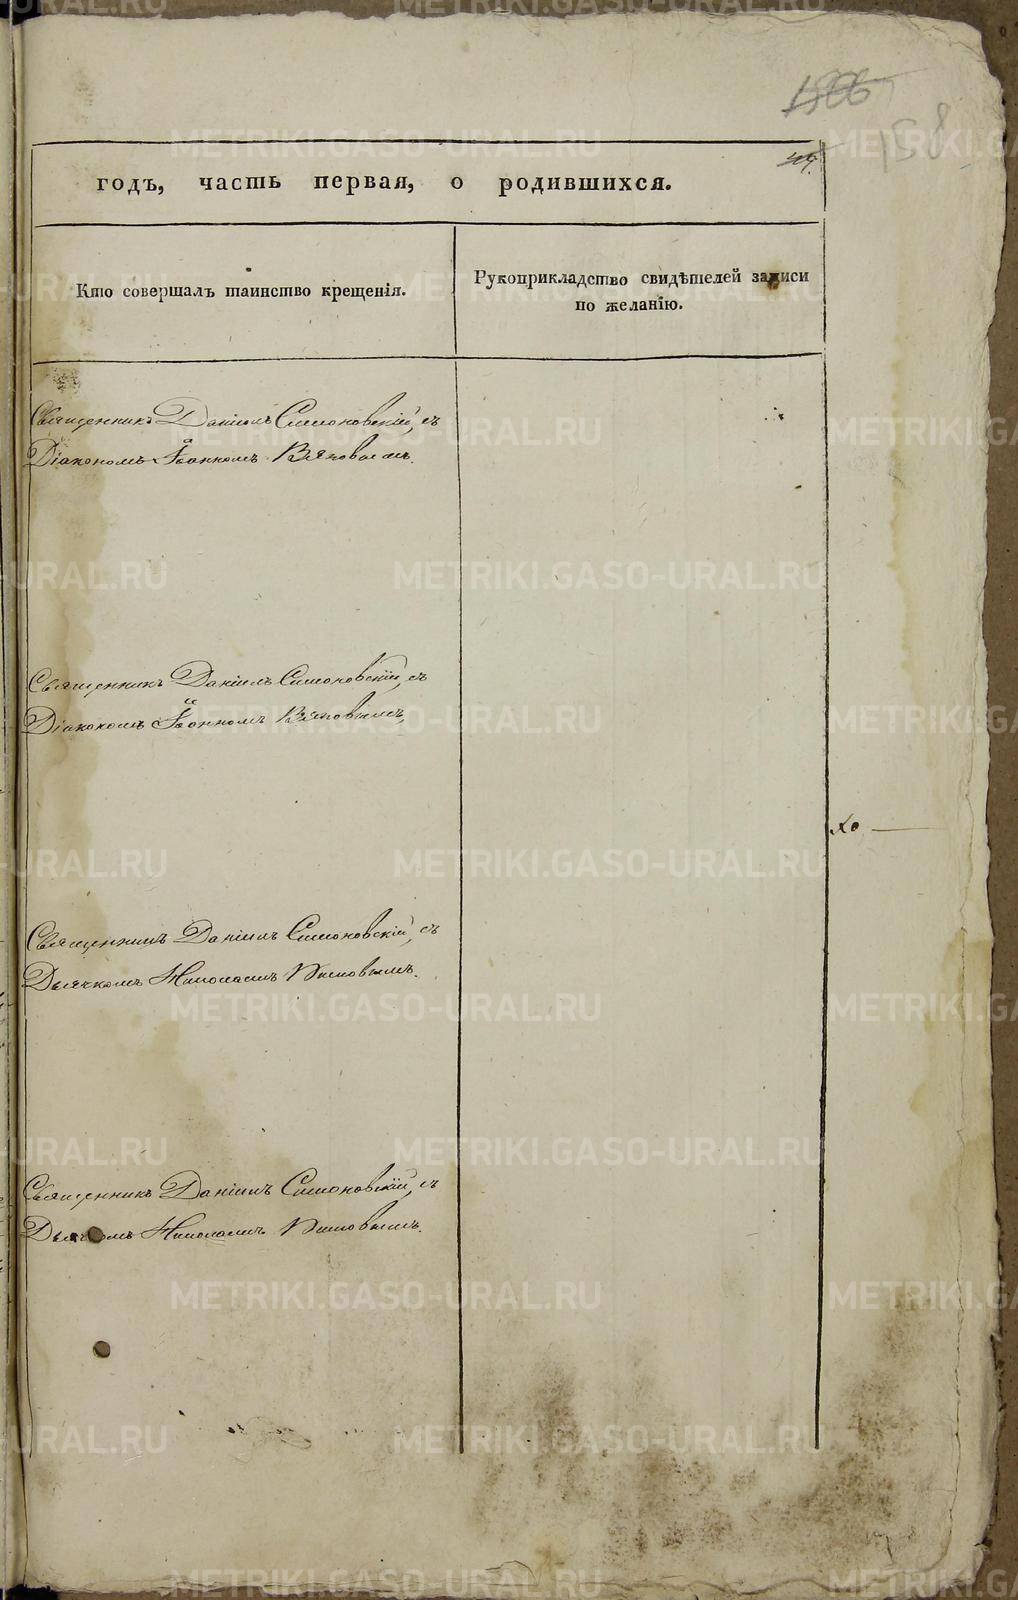 158
годъ, часть первая, о родившихся.
Кто совершалъ таинство крещенія.
Рукоприкладство свидѣтелей записи
по желанію.
Священникъ Даніилъ Симоновскій, съ
Діакономъ Іоанномъ Вяповымъ.
Священникъ Даніилъ Симоновскій, съ
Діакономъ Іоанномъ Вяповымъ,
Священникъ Даніилъ Симоновскій, съ
Дьячкомъ Николаемъ
Священникъ Даніилъ Симоновскій, съ
Дьячкомъ Николаемъ
METRIKI.GASO-URAL.RU